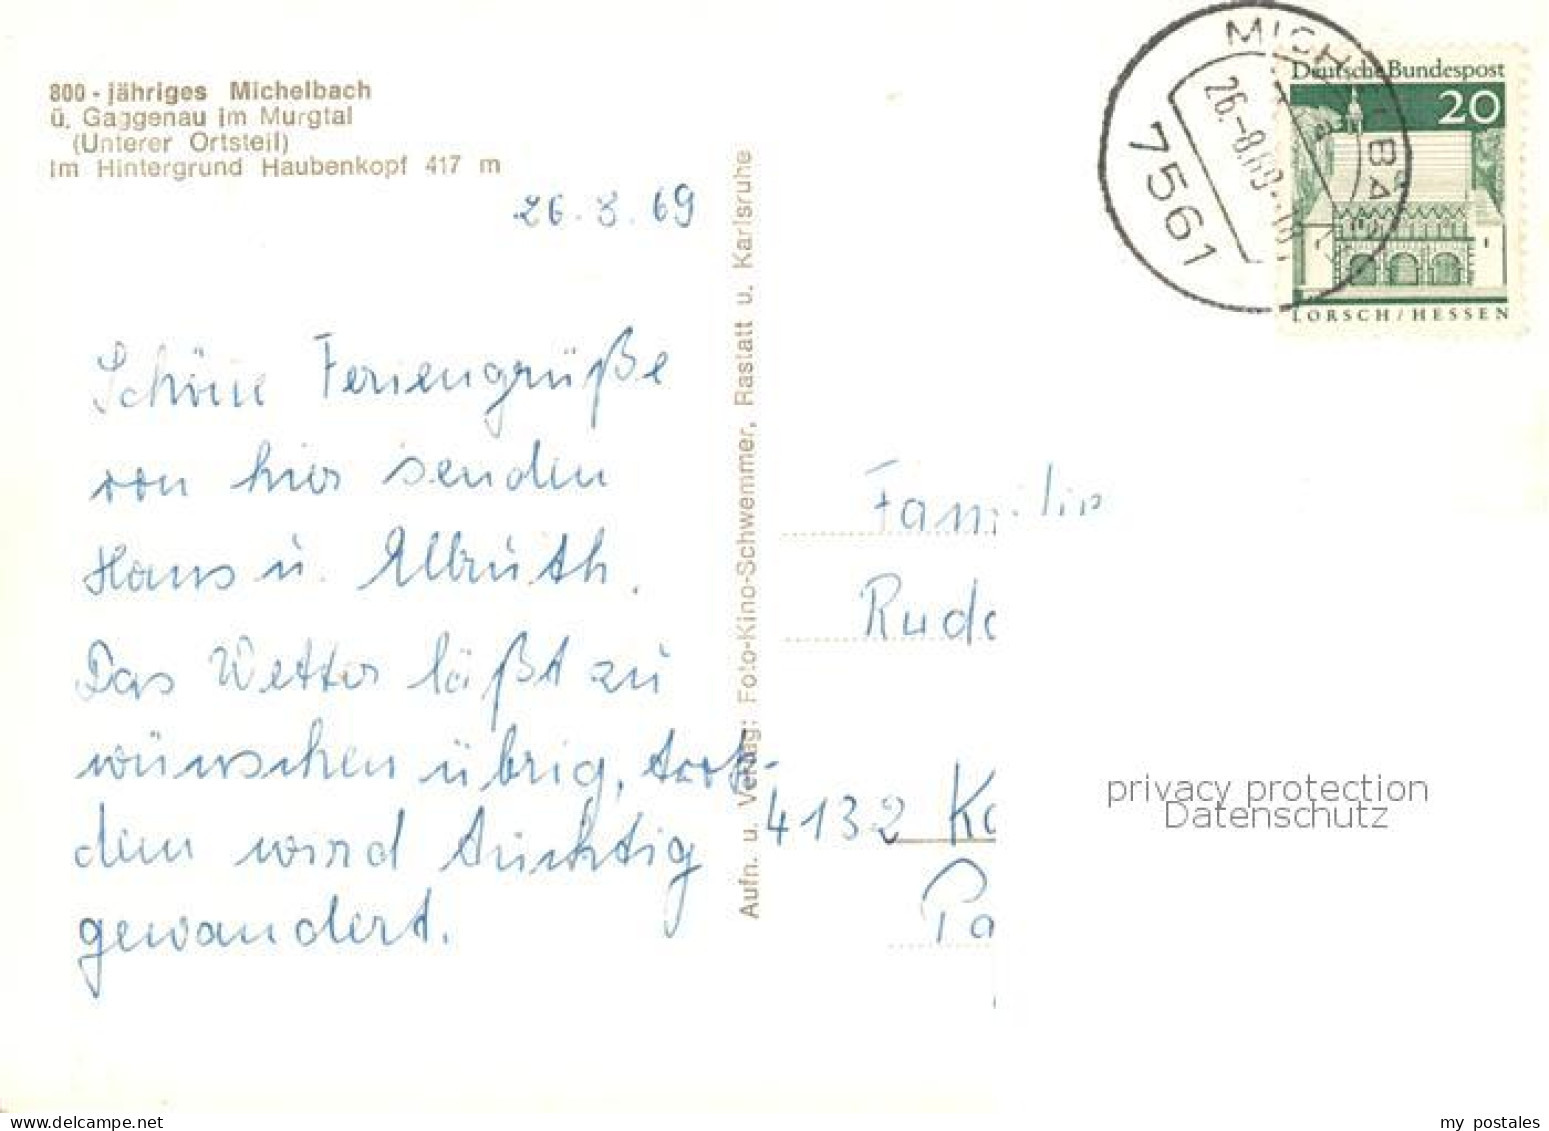 800 - jähriges Michelbach
ü. Gaggenau im Murgtal
(Unterer Ortsteil)
Im Hintergrund Haubenkopf 417 m
26. 8. 69
Schöne Feriengrüße
von hier senden
Hans u. Ellruth.
Das Wetter läßt zu
wünschen übrig, trotz-
dem wird tüchtig
gewandert.
Aufn. u. Verlag: Foto-Kino-Schwemmer, Rastatt u. Karlsruhe
MICHELBACH
26.-8.69
7561
Deutsche Bundespost
20
LORSCH/HESSEN
Familie
4132
privacy protection
Datenschutz
my postales